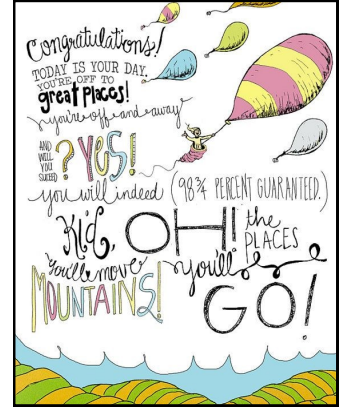 Congratulations!
TODAY IS YOUR DAY.
YOU'RE OFF TO
great places!
you're off and away
AND WILL YOU SUCCEED? YES!
you will indeed (98¾ PERCENT GUARANTEED.)
Kid,
You'll move
MOUNTAINS!
OH! the PLACES
you'll
GO!